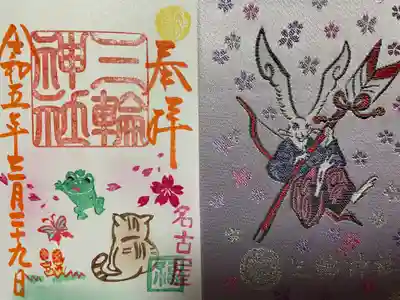 奉拝
三輪
神社
名古屋
令和五年三月二十九日